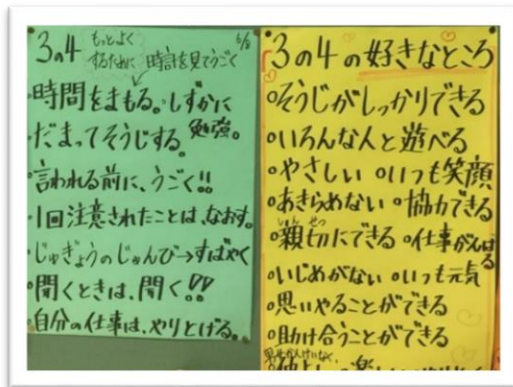 3の4 もっとよく 6/8
するために 時計を見てうごく
・時間をまもる。・しずかに
・だまってそうじする。勉強。
・言われる前に、うごく!!
・1回注意されたことは、なおす。
・じゅぎょうのじゅんび→すばやく
・聞くときは、聞く!!
・自分の仕事は、やりとげる。
3の4の好きなところ
・そうじがしっかりできる
・いろんな人と遊べる
・やさしい ・いつも笑顔
・あきらめない ・協力できる
しんせつ
・親切にできる ・仕事がんばる
・いじめがない ・いつも元気
・思いやることができる
・助け合うことができる